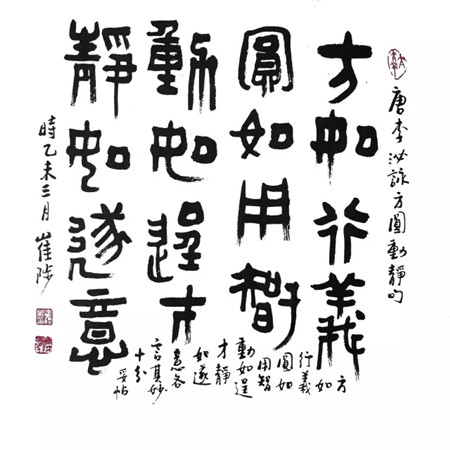 唐李泌詠方圓動靜句
方如行義
圓如用智
動如逞才
靜如遂意
方
如
行義
圓如
用智
動如逞
才靜
如遂
意各
言其妙
十分
妥帖
時乙未三月崔陟